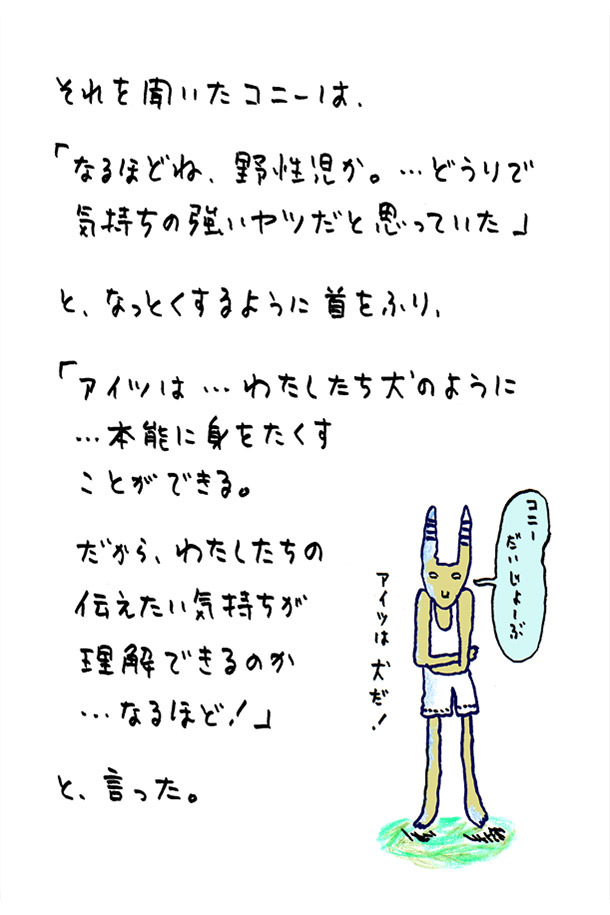 それを聞いたコニーは、
「なるほどね、野性児か。…どうりで
気持ちの強いヤツだと思っていた」
と、なっとくするように首をふり、
「アイツは…わたしたち犬のように
…本能に身をたくす
ことができる。
だから、わたしたちの
伝えたい気持ちが
理解できるのか
…なるほど!」
と、言った。
コニー
だいじょーぶ
アイツは犬だ!